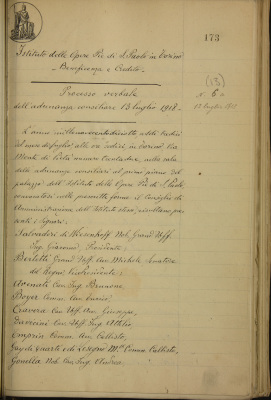 173
Istituto delle Opere Pie di S. Paolo in Torino
- Beneficenza e Credito -
Processo verbale
dell'adunanza consiliare 13 luglio 1918 -
(13)
N. 6
13 luglio 1918
L'anno millenovecentodiciotto addì tredici
del mese di luglio, alle ore tredici, in Torino, Via
Monte di Pietà numero trentadue, nella sala
delle adunanze consiliari al primo piano del
palazzo dell'Istituto delle Opere Pie di S. Paolo,
convocatosi nelle prescritte forme il Consiglio di
Amministrazione dell'Istituto stesso, risultano pre-
senti i signori:
Salvadori di Wiesenhoff Nob. Grand'Uff.
Ing. Giacomo, Presidente;
Berlatti Grand'Uff. Avv. Michele Senatore
del Regno, Vicepresidente;
Avenati Cav. Ing.
Boyer Comm. Avv. Enrico,
Cravera Cav. Uff. Avv. Giuseppe,
Cav. Uff. Ing. Attilio
Comm. Avv. Callisto,
Gay di Quarti e di Lesegno M.se Comm. Callisto,
Gonella Nob. Cav. Ing. Andrea